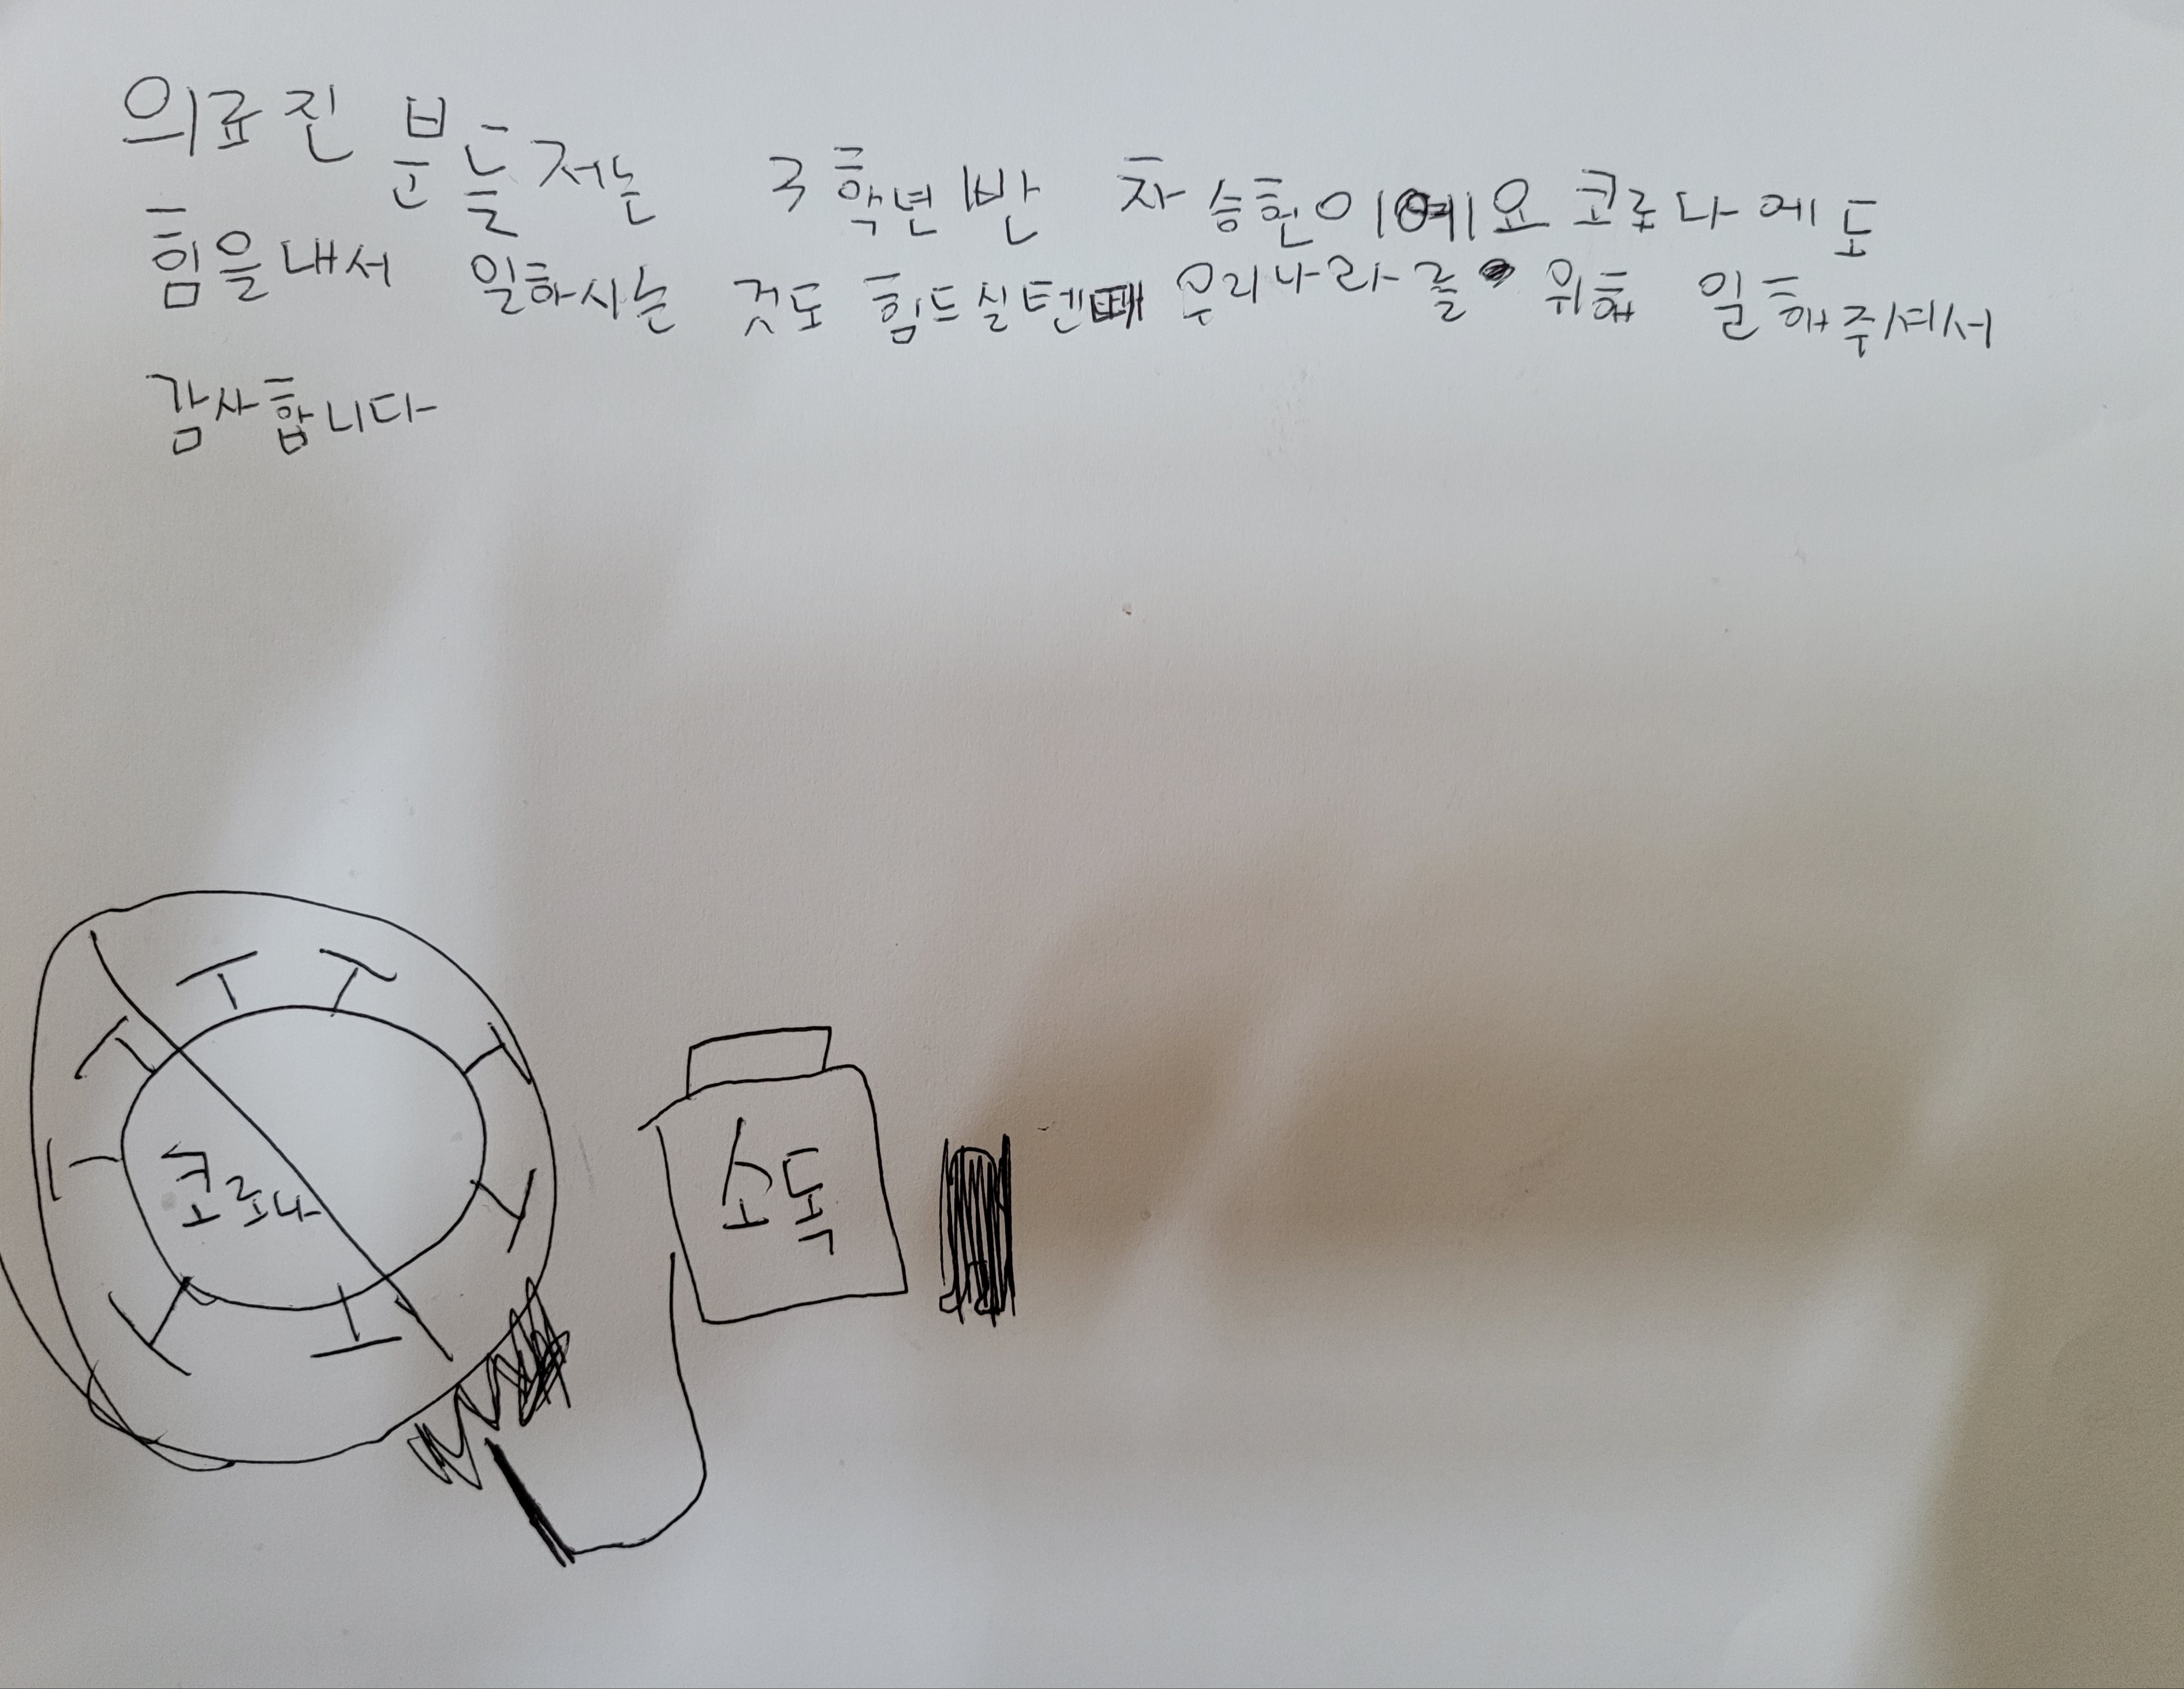 의료진 분들 저는 3학년 1반 차승헌이예요 코로나에도
힘을내서 일하시는 것도 힘드실텐때 우리나라를 위해 일해주셔서
감사합니다
코로나
소독